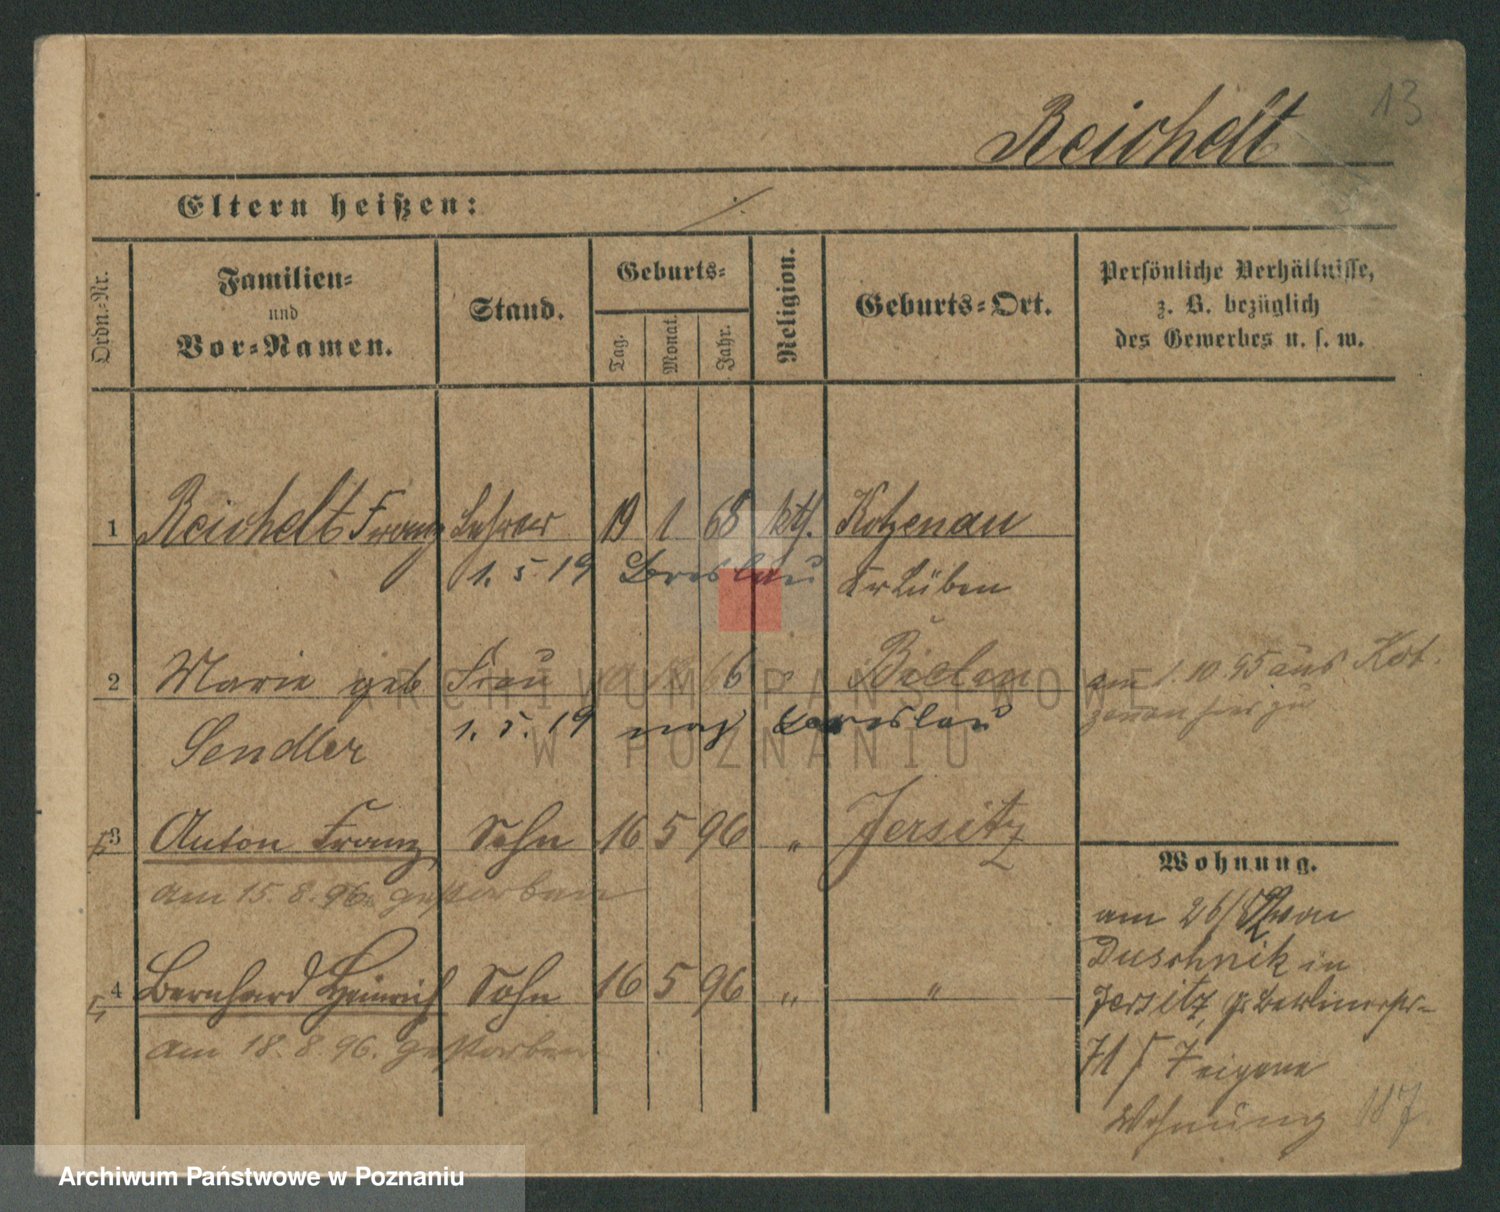 13
Reichelt
Eltern heißen:
Ordn.-Nr.
Familien-
und
Vor-Namen.
Stand.
Geburts-
Tag.
Monat.
Jahr.
Religion.
Geburts-Ort.
Persönliche Verhältnisse,
z. B. bezüglich
des Gewerbes u. s. w.
1 Reichelt Franz Lehrer 19 1 68 kth. Kotzenau
1. 5. 19 Breslau Kr Lüben
2 Marie geb Frau 6 Bielau
am 1. 10. 95 aus Kot-
zenau hier zu
Sendler 1. 5. 19 nach Breslau
3 Anton Franz Sohn 16 5 96 " Jersitz
am 15. 8. 96 gestorben
4 Bernhard Heinrich Sohn 16 5 96 " "
am 18. 8. 96. gestorben
Wohnung.
am 26/ von
Duschnik in
Jersitz, Berlinerstr-
71 eigene
Wohnung 187
ARCHIWUM PAŃSTWOWE
W POZNANIU
Archiwum Państwowe w Poznaniu